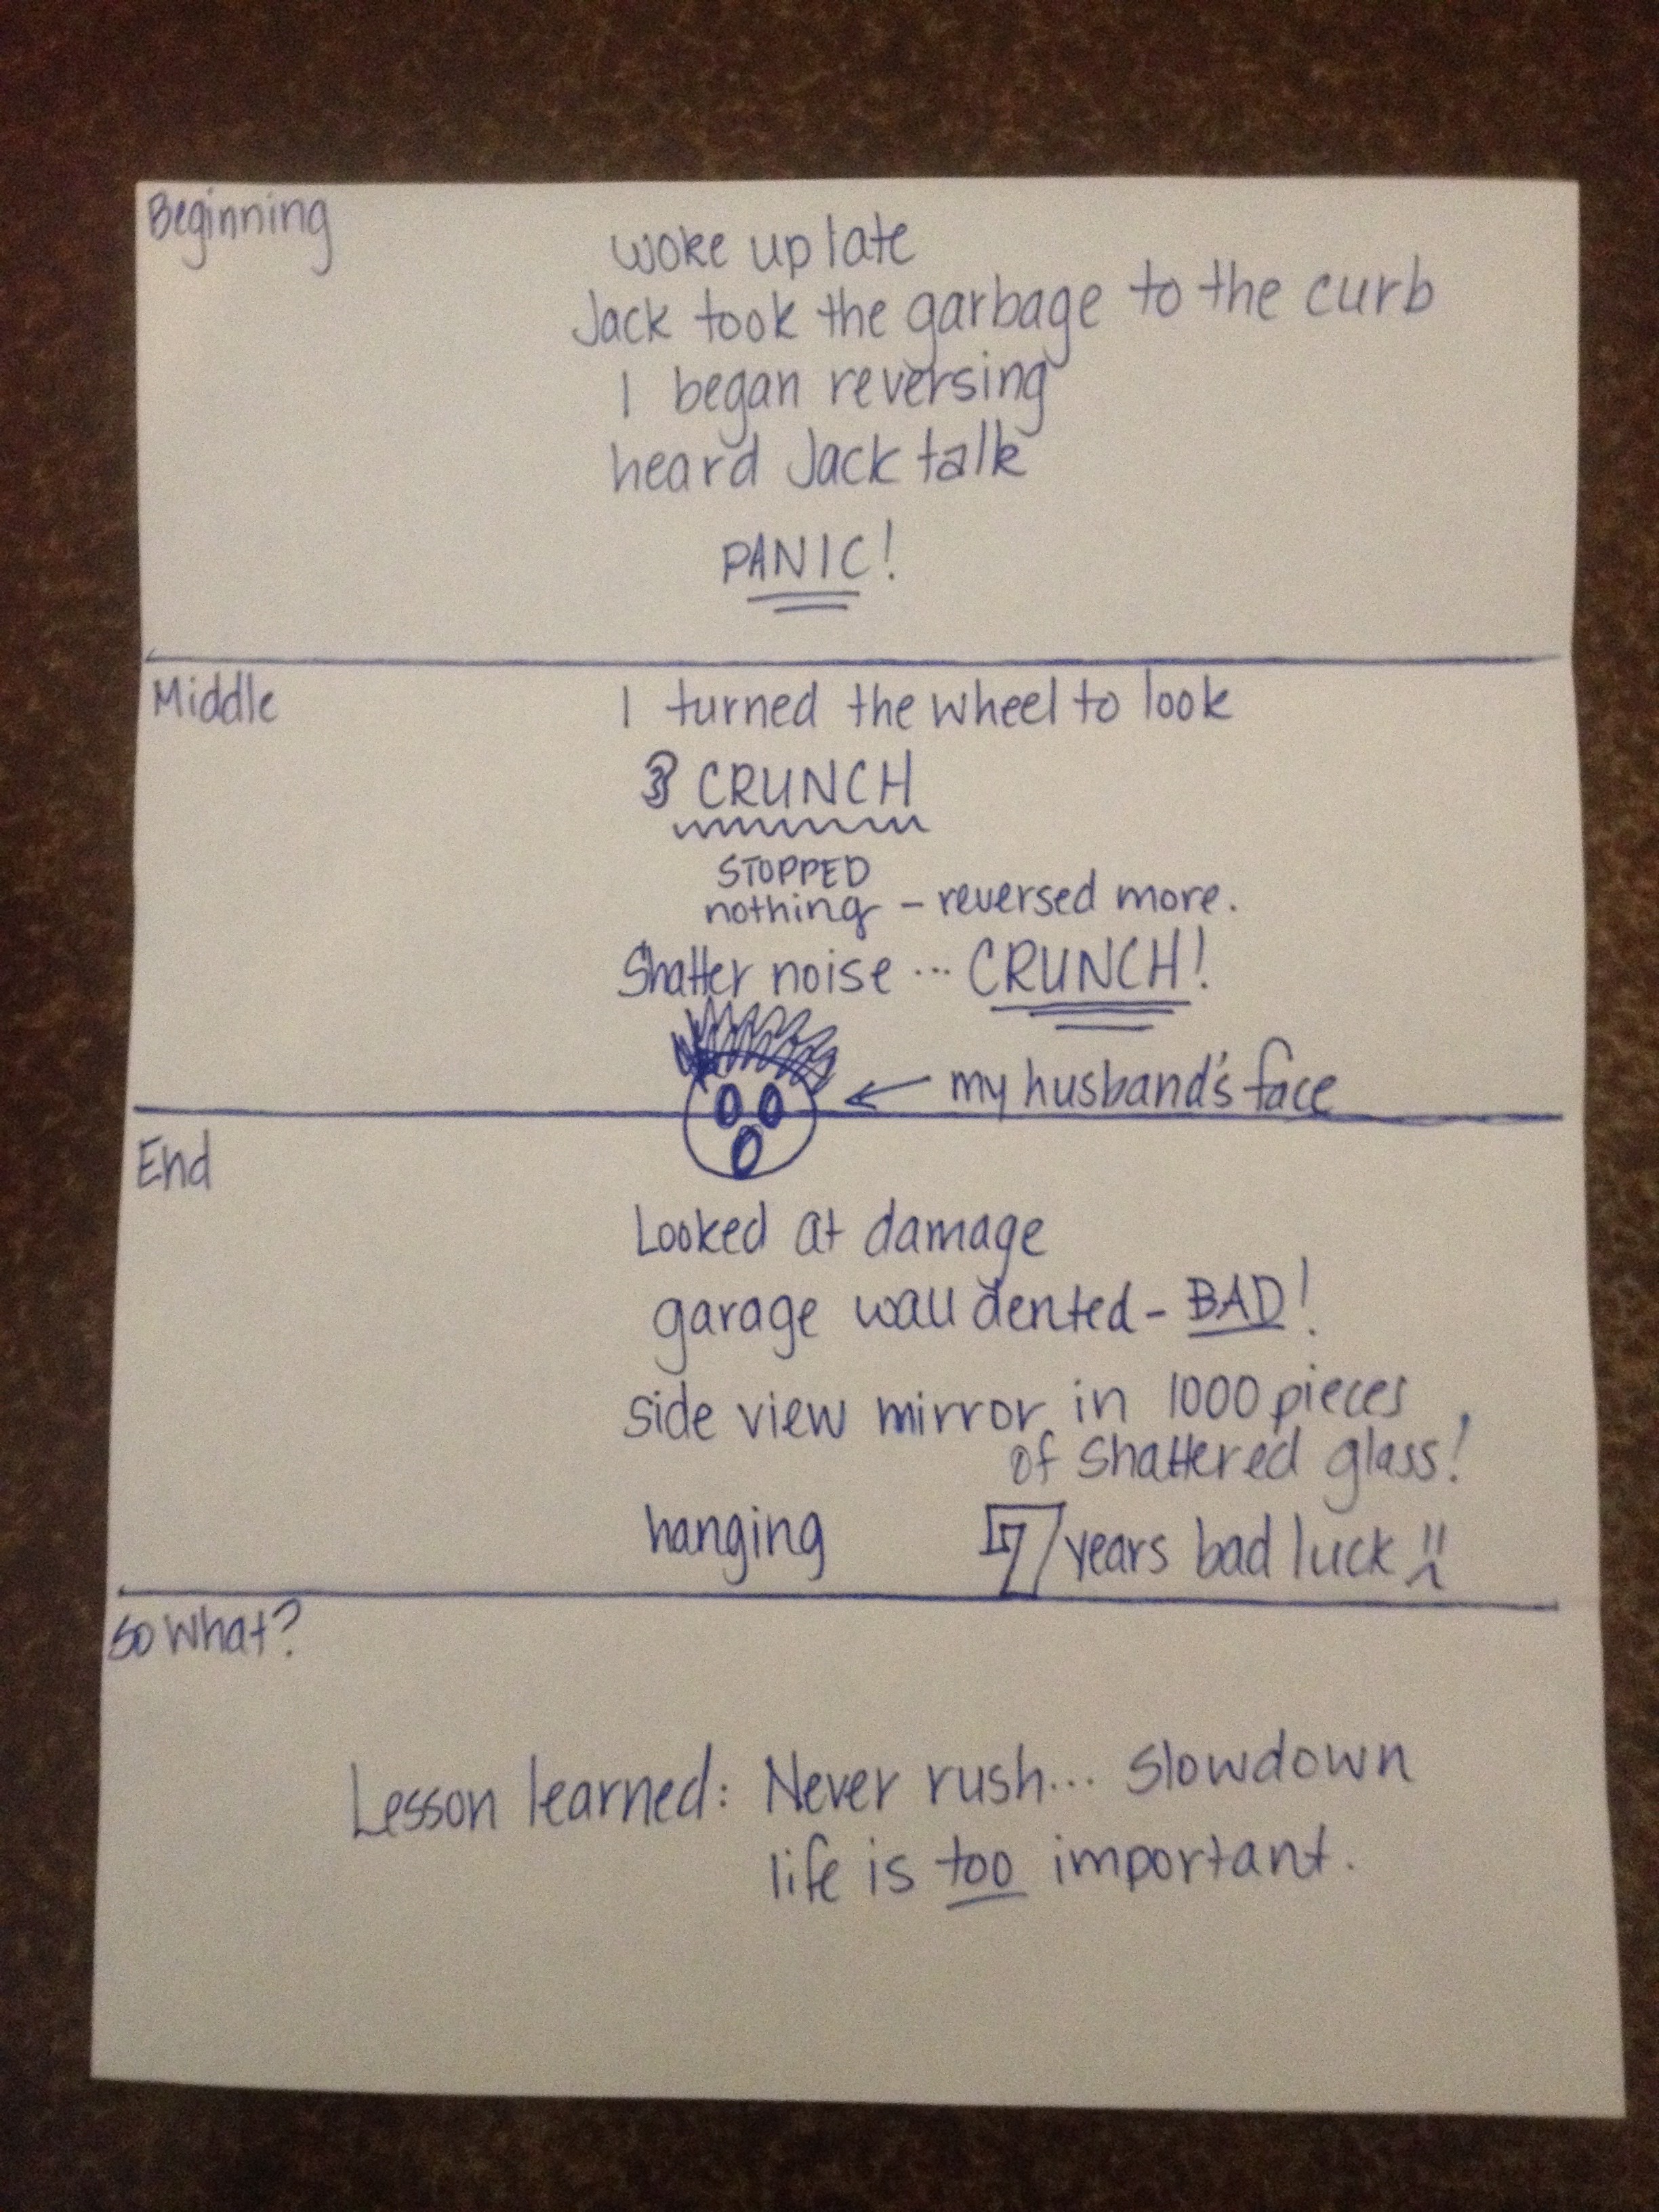 Beginning
woke up late
Jack took the garbage to the curb
I began reversing
heard Jack talk
PANIC!
Middle
I turned the wheel to look
CRUNCH
STOPPED
nothing - reversed more.
Shatter noise ... CRUNCH!
my husband's face
End
Looked at damage
garage wall dented - BAD!
side view mirror in 1000 pieces
of shattered glass!
hanging 7 years bad luck
So What?
Lesson learned: Never rush... slowdown
life is too important.